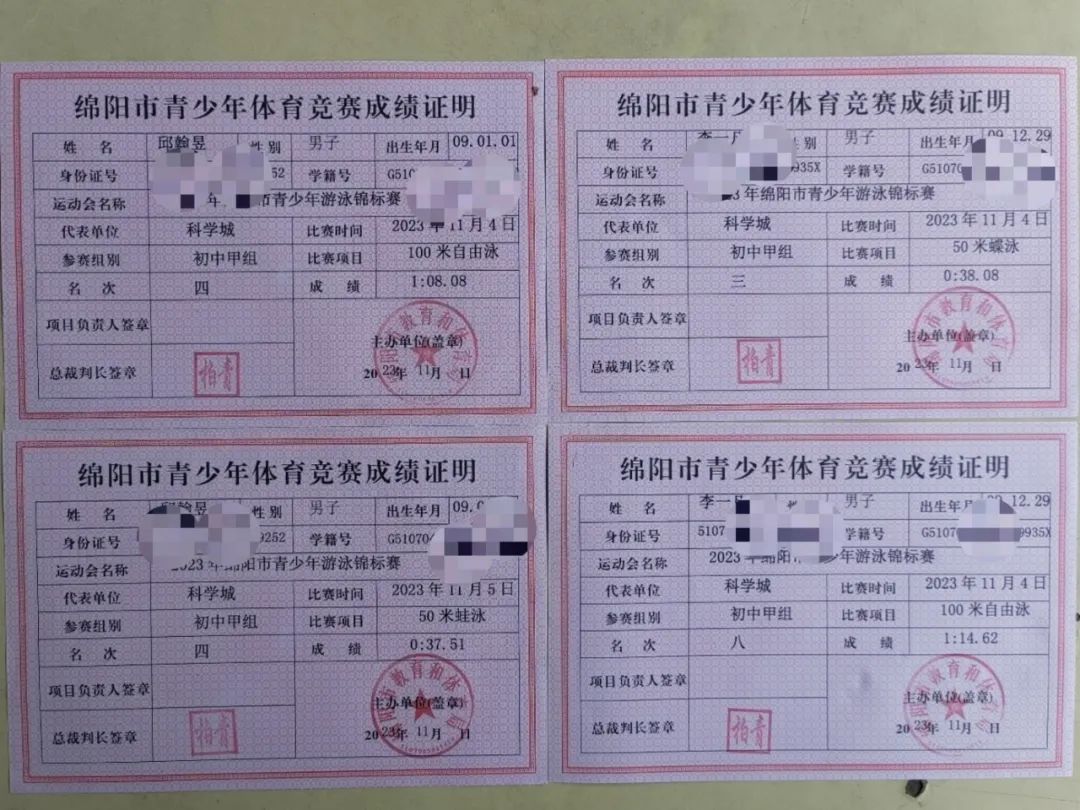 绵阳市青少年体育竞赛成绩证明
姓 名 邱翰昱 性别 男子 出生年月 09.01.01
身份证号 52 学籍号 G510
运动会名称 年 市青少年游泳锦标赛
代表单位 科学城 比赛时间 2023年11月4日
参赛组别 初中甲组 比赛项目 100米自由泳
名 次 四 成 绩 1:08.08
项目负责人签章
主办单位(盖章)
总裁判长签章 柏青 2023年11月 日
绵阳市青少年体育竞赛成绩证明
姓 名 李一 别 男子 出生年月 09.12.29
身份证号 935X 学籍号 G5107
运动会名称 3年绵阳市青少年游泳锦标赛
代表单位 科学城 比赛时间 2023年11月4日
参赛组别 初中甲组 比赛项目 50米蝶泳
名 次 三 成 绩 0:38.08
项目负责人签章
主办单位(盖章)
总裁判长签章 柏青 2023年11月 日
绵阳市青少年体育竞赛成绩证明
姓 名 邱翰昱 性别 男子 出生年月 09.
身份证号 9252 学籍号 G51070
运动会名称 2023年绵阳市青少年游泳锦标赛
代表单位 科学城 比赛时间 2023年11月5日
参赛组别 初中甲组 比赛项目 50米蛙泳
名 次 四 成 绩 0:37.51
项目负责人签章
主办单位(盖章)
总裁判长签章 柏青 2023年11月 日
绵阳市青少年体育竞赛成绩证明
姓 名 李一 男子 出生年月 12.29
身份证号 5107 学籍号 G5107 9935X
运动会名称 2023年绵阳市青少年游泳锦标赛
代表单位 科学城 比赛时间 2023年11月4日
参赛组别 初中甲组 比赛项目 100米自由泳
名 次 八 成 绩 1:14.62
项目负责人签章
主办单位(盖章)
总裁判长签章 柏青 2023年11月 日